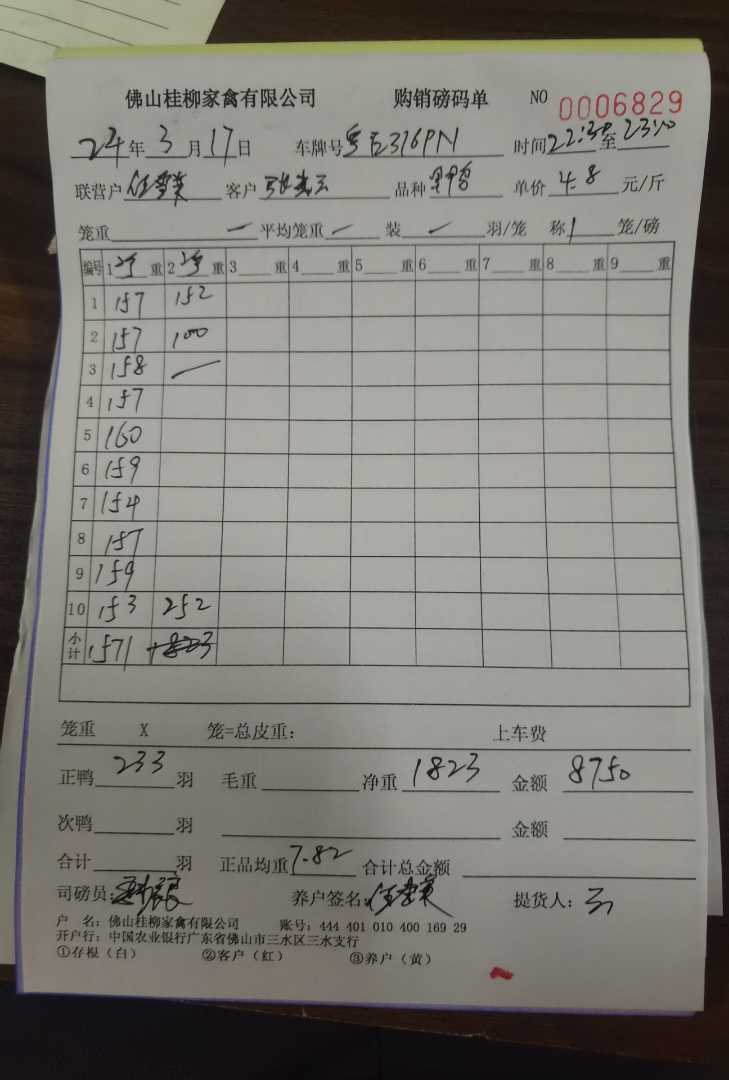 佛山桂柳家禽有限公司 购销磅码单 NO 0006829
24年3月17日 车牌号 316PN 时间22:30至23:10
联营户 客户 品种 单价 4.8 元/斤
笼重 一 平均笼重 一 装 一 羽/笼 称 1 笼/磅
编号 1 净 重 2 净 重 3 重 4 重 5 重 6 重 7 重 8 重 9 重
1 157 152
2 157 100
3 158 —
4 157
5 160
6 159
7 154
8 157
9 159
10 153 252
小计 1571
笼重 X 笼=总皮重: 上车费
正鸭 233 羽 毛重 净重 1823 金额 8750
次鸭 羽 金额
合计 羽 正品均重 7.82 合计总金额
司磅员: 养户签名: 提货人:
户 名: 佛山桂柳家禽有限公司 账号: 444 401 010 400 169 29
开户行: 中国农业银行广东省佛山市三水区三水支行
①存根(白) ②客户(红) ③养户(黄)